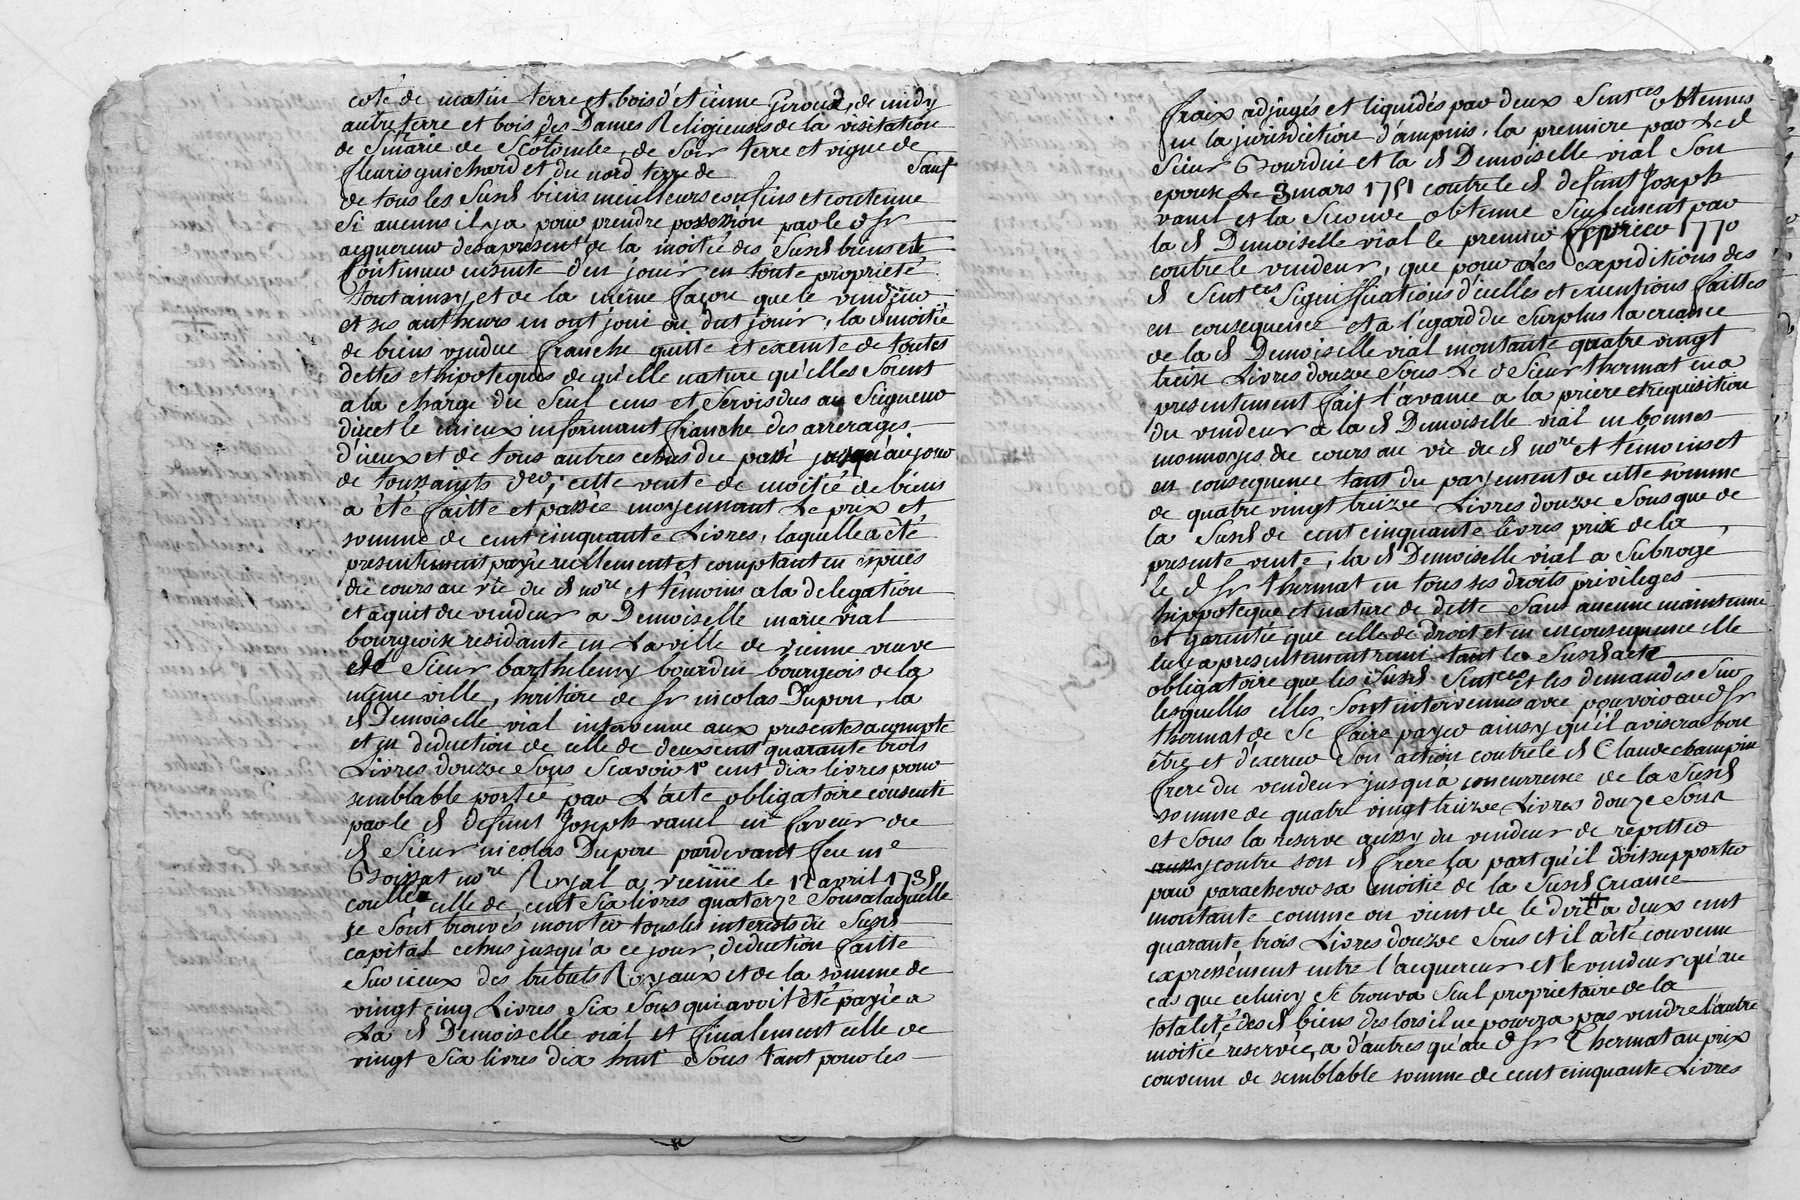 coté de matin terre et bois d'etienne Giroud, de midy
autre terre et bois des Dames Religieuses de la visitation
de Ste marie de Ste Colombe, de soir terre et vigne de
fleuris guichard et du nord terre de Sauf
de tous les susd biens meilleurs confins et contenue
Si aucuns il y a pour prendre possession par le d Sr
acquereur des apresent de la moitié des susd biens et
Continuer ensuite d'en jouir en toute proprieté
tout ainsy et de la même façon que le vendeur
et ses autheurs en ont joui ou dut jouir, la d moitié
de biens vendue franche quitte et exemte de toutes
dettes et hipoteques de qu'elle nature qu'elles soient
a la charge du seul cens et servis dus au Seigneur
direct le mieux informant franche des arrerages
d'iceux et de tous autres echus du passé jusqu'au jour
de toussaints der, cette vente de moitié de biens
a été faitte et passée moyennant le prix et
somme de cent cinquante Livres, laquelle a été
presentement payée reellement et comptant en especes
du cours au vû du d nore et témoins a la delegation
et aquit du vendeur a Demoiselle marie vial
bourgeoise residante en La ville de vienne veuve
de Sieur barthelemy bourdin bourgeois de la
même ville, heritiere de Sr nicolas Dupon, la
d Demoiselle vial intervenue aux presentes a compte
et en deduction de celle de deux cent quarante trois
Livres douze Sous Scavoir 1o cent dix livres pour
semblable portée par L'acte obligatoire consenti
par le d defunt Joseph vanel en faveur du
d Sieur nicolas Dupon pardevant feu me
Boissat nore Royal a vienne le 12 avril 1738
celle de cent Six livres quatorze Sous a laquelle
se Sont trouvés monter tous les interests du susd
capital echus jusqu'a ce jour, deduction faitte
Sur iceux des tributs Royaux et de la somme de
vingt cinq Livres Six Sous qui avoit été payée a
La d Demoiselle vial et finalement celle de
vingt Six livres dix huit Sous tant pour les
fraix adjugés et liquidés par deux Sentces obtenues
en la jurisdiction d'ampuis, la premiere par Le d
Sieur Bourdin et la d Demoiselle vial Son
epouse Le 3 mars 1751 contre le d defunt Joseph
vanel et la Seconde obtenue Seulement par
la d Demoiselle vial le premier fevrier 1770
contre le vendeur, que pour les expeditions des
d Sentces Significations d'icelles et executions faittes
en consequence et a l'egard du Surplus la creance
de la d Demoiselle vial montante quatre vingt
treize Livres douze Sous Le d Sieur thermat en a
presentement fait l'avance a la priere et requisition
du vendeur a la d Demoiselle vial en bonnes
monnoyes du cours au vû du d nore et temoins et
en consequence tant du payement de cette somme
de quatre vingt treize Livres douze Sous que de
la Susd de cent cinquante livres prix de la
presente vente, la d Demoiselle vial a Subrogé
le d Sr thermat en tous ses droits privileges
hippoteque et nature de dette Sans aucune maintenue
et garentie que celle de droit et en consequence elle
luy a presentement remi tant le Susd acte
obligatoire que les Susd Sentces et les demandes Sur
lesquelles elles Sont intervenues avec pouvoir au d Sr
thermat de Se faire payer ainsy qu'il avisera bon
être et d'exercer Son action contre le d Claude champin
frere du vendeur jusqu'a concurrence de la Susd
somme de quatre vingt treize Livres douze Sous
et Sous la reserve aussy du vendeur de repetter
contre son d frere la part qu'il doit supporter
pour parachever sa moitié de la Susd Creance
montante comme on vient de le dire a deux cent
quarante trois Livres douze Sous et il a été convenu
expressément entre l'acquereur et le vendeur qu'au
cas que celuicy Se trouva Seul proprietaire de la
totalité des d biens des lors il ne pourra pas vendre l'autre
moitié reservée, a d'autres qu'au d Sr Thermat au prix
convenu de semblable somme de cent cinquante Livres